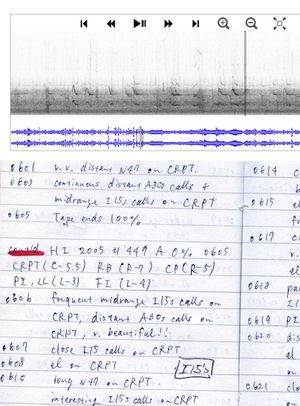 0601 v.v. distant N47 on CRPT.
0603 continuous distant A30s calls +
midrange I15s calls on CRPT
0605 Tape ends 100%
cont'd HI 2005 # 449 A 0% 0605
CRPT (C-5.5) RB (R-9) CP (R-5)
PI, LL (L-3) FI (L-4)
0606 frequent midrange I15s calls on
CRPT, distant A30s calls on
CRPT, v. beautiful!!
0607 close I15 calls on CRPT
0608 el on CRPT I15s
0610 long N47 on CRPT
interesting I15s calls on CRPT
0614
0615 el
0617
0618
0619 PI
0620
el
on
0621